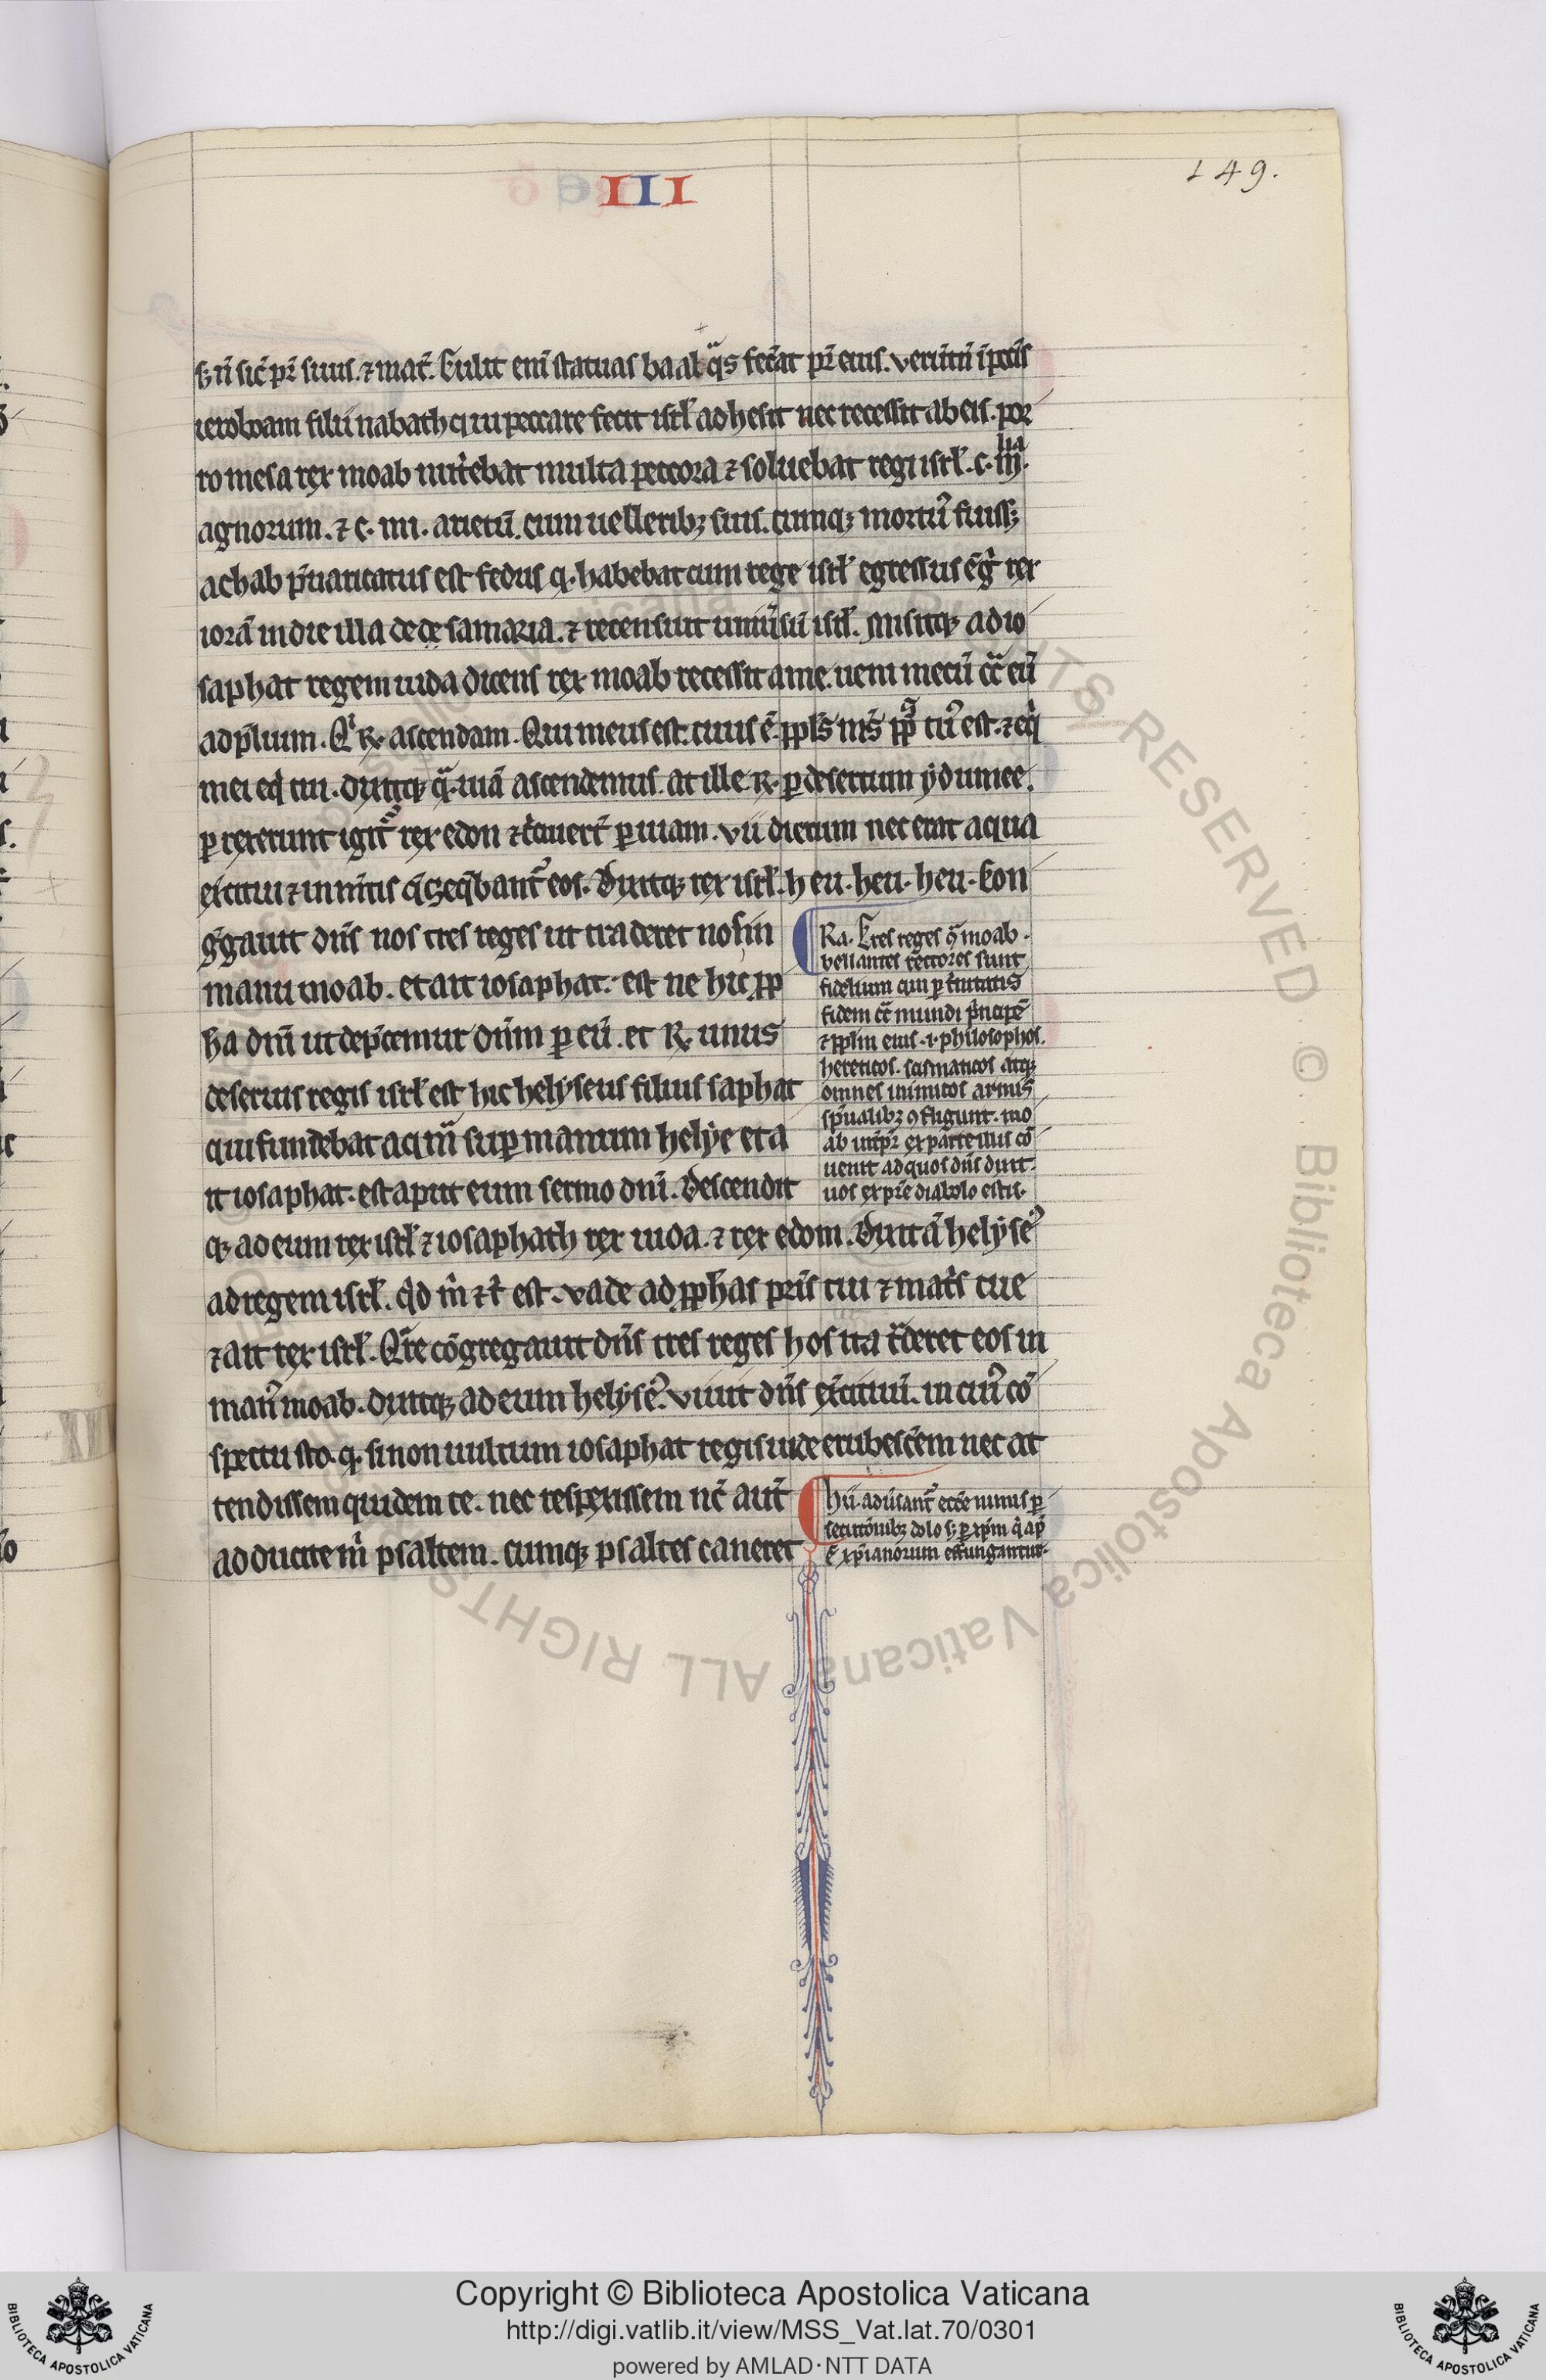 III
149.
sꝫ nͦ sic̄ pr̄ suus. ⁊ mat̄. Tulit eni̅ statuas baal qͣs fec̄at pr̄ eius. verūt̄n ī pctīs
ieroboam filii nabath qui peccare fecit isrl̄ adhesit nec recessit ab eis. por
ro mesa rex moab nut̓ebat multa peccora ⁊ soluebat regi isrl̄. c. lia m̄.
agnorum. ⁊ c. m. arietū. cum uelleribꝫ suis. cumqꝫ mortuꝰ fuissꝫ
achab p̄uaricatus est fedus q. habebat cum rege isrl̄ egressus ē gͥ rex
iorā in die illa de de samaria. ⁊ recensuit uniu̓sū isrl̄. misitqꝫ ad io
saphat regem iuda dicens rex moab recessit a me. ueni mecū cͣ eū
ad p̄lium. Qͥ R. ascendam. Qui meus est. tuus ē. ppl̄s m̄s pp̄ tuꝰ est. ⁊ eqͥ
mei eqͥ tui. dixitqꝫ qͣ. uiā ascendemus. at ille R. ꝑ desertum ydumee.
ꝑrexerunt igit̓ rex edon ⁊ c̓cuier̄t ꝑ uiam. vii dierum nec erat aqua
ex̓citui ⁊ iumētis q̄ seq̄bant̓ eos. Dixitqꝫ rex isrl̄. heu. heu. heu. Con
g̓gauit dn̄s nos tres reges ut traderet nos in
manu moab. et ait iosaphat. est ne hic pp
ha dn̄i ut dep̄cemur dn̄m ꝑ eū. et R. unus
de seruis regis isrl̄ est hic helyseus filius saphat
qui fundebat aquā suꝑ manum helye et a
it iosaphat. est aput eum sermo dn̄i. Descendit
qꝫ ad eum rex isrl̄ ⁊ iosaphath rex iuda. ⁊ rex edom. Dixit aͧ helyseꝰ
ad regem isrl̄. qͥd m̓ ⁊ t̓ est. vade ad pp̄has pr̄is tui ⁊ mat̓s tue
⁊ ait rex isrl̄. Qͣre cōgregauit dn̄s tres reges hos ita t̓deret eos in
manꝰ moab. dixitqꝫ ad eum helyseꝰ. viuit dn̄s ex̓cituū. in cuiꝰ cō
spectu sto. q. si non uultum iosaphat regis iude erubescēm nec at
tendissem quidem te. nec respexissem nc̄ aut̄
adducite m̓ psaltem. cumqꝫ psaltes caneret
Ra. Tres reges qͣ moab.
bellantes rectores sunt
fidelium qui ꝑ t̓nitatis
fidem cͣ mundi p̓ncipē
⁊ pplm̄ eius .i. philosophos.
hereticos. scismaticos atqꝫ
omnes inimicos armis
sp̄ualibꝫ ꝯfligunt. mo
ab int̓pr̄ ex patre illis cō
uenit ad quos dn̄s dixit.
uos ex pr̄e diabolo estis.
Hii adu̓sant̓ ecc̄e nimis ꝑ
secutōnibꝫ dolo sꝫ ꝑ xp̄m qͥ cap̄
ē xp̄ianorum effungantur.
Copyright © Biblioteca Apostolica Vaticana
http://digi.vatlib.it/view/MSS_Vat.lat.70/0301
powered by AMLAD·NTT DATA